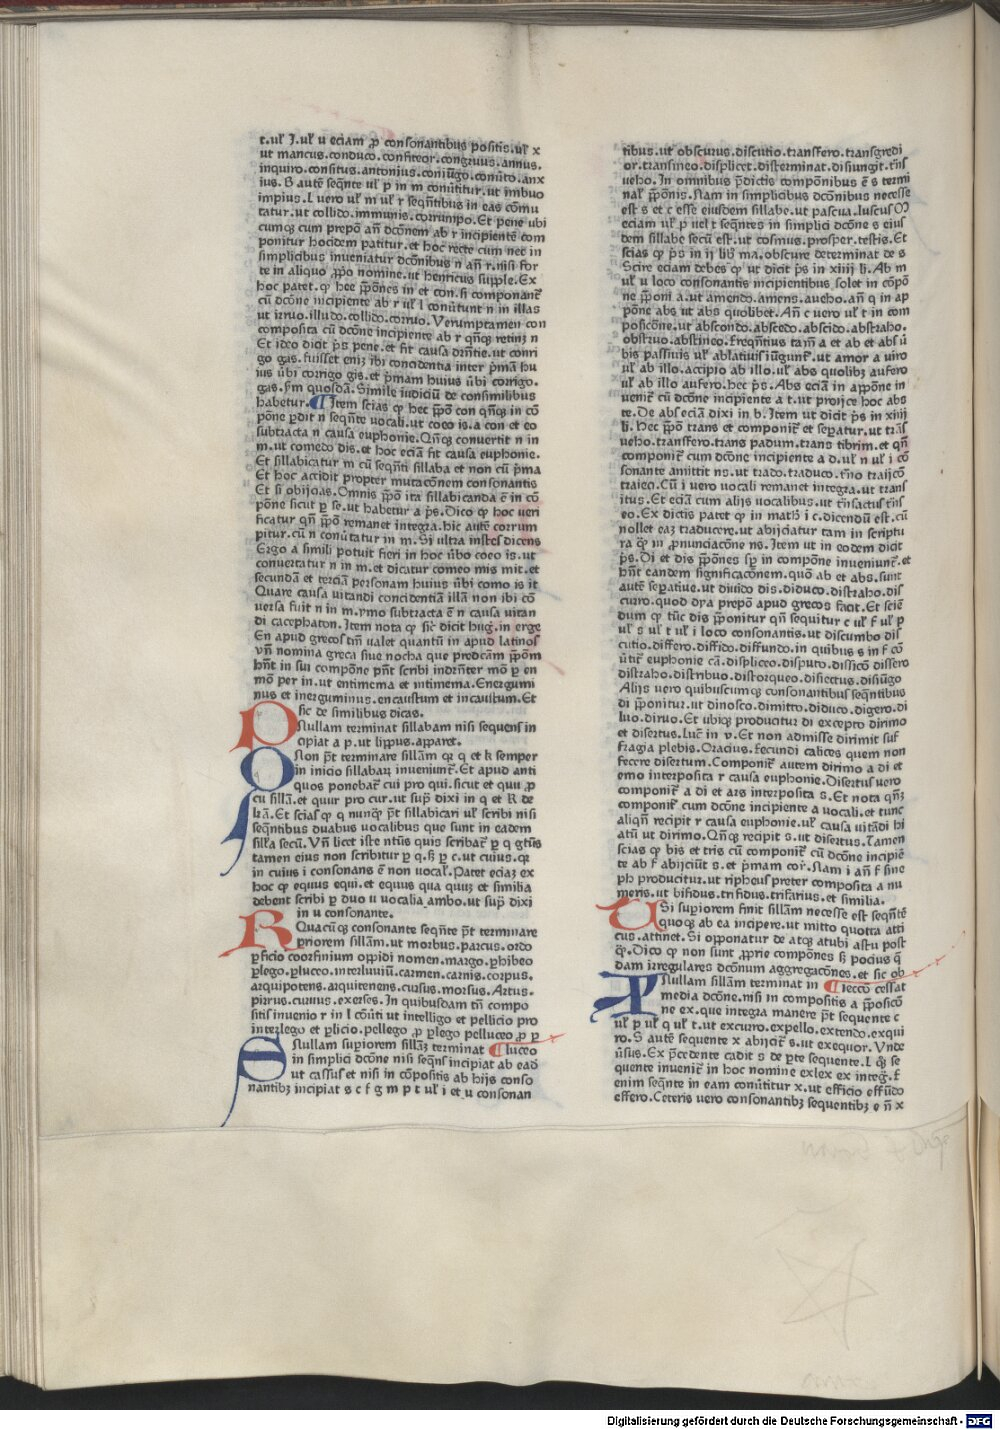 t.ul̵ J.ul̵ u eciam ꝓ consonantibus positis.ul̵ x
ut mancus.conduco.confiteor.congruus.annus.
inquiro.consitus.antonius.coniu̅go.conu̅to.anx
ius. B aute̅ seq̅nte ul̵ p in m conu̅titur.ut imbuo
impius.L uero ul̵ m ul̵ r seq̅ntibus in eas co̅mu
tatur.ut collido.immunis.corrumpo.Et pene ubi
cumq̅ cum prepo̅ an̅ dc̅onem ab r incipiente̅ com
ponitur hocidem patitur.et hoc recte cum nec in
simplicibus inueniatur dc̅onibus n an̅ r.nisi for
te in aliquo ꝓpo̅ nomine.ut henricus supple.Ex
hoc patet.ꝙ hee p̅po̅nes in et con.si componant̅
cu̅ dc̅one incipiente ab r ul̵ l conu̅tunt n in illas
ut irruo.illudo.collido.corruo.Verumptamen con
composita cu̅ dc̅one incipiente ab r qn̅q̅ retinꝫ n
Et ideo dicit p̅s pene.et fit causa dr̅ntie.ut conri
go gas.fuisset enī ibi concidentia inter p̅ma̅ hu
ius u̅bi corrigo gis.et p̅mam huius u̅bi corrigo.
gas.ẜm quosda̅.Simile iudiciu̅ de consimilibus
habetur.¶Item scias ꝙ hec p̅po̅ con qn̅q̅ in co̅
po̅ne ꝑdit n seq̅nte vocali.ut coeo is.a con et eo
subtracta n causa euphonie.Qn̅q̅ conuertit n in
m.ut comedo dis.et hoc ecia̅ fit causa euphonie.
Et sillabicatur m cu̅ seq̅nti sillaba et non cu̅ p̅ma
Et hoc accidit propter mutac̅onem consonantis
Et si obijcias.Omnis p̅po̅ ita sillabicanda e̅ in co̅
po̅ne sicut ꝑ se.ut habetur a p̅s.Dico ꝙ hoc ueri
ficatur qn̅ p̅po̅ remanet integra.hic aute̅ corrum
pitur.cu̅ n conu̅tatur in m.Si ultra instes dicens
Ergo a simili potuit fieri in hoc u̅bo coeo is.ut
conuertatur n in m.et dicatur comeo mis mit.et
secunda̅ et tercia̅ personam huius u̅bi como is it
Quare causa vitandi concidentia̅ illa̅ non ibi co̅
uersa fuit n in m.ymo subtracta e̅ n causa vitan
di cacephaton.Item nota ꝙ sic̅ dicit hug̅.in erge
En apud grecos tm̅ ualet quantu̅ in apud latinos
vn̅ nomina greca siue nocha que predc̅am p̅po̅m
hn̅t in sui compo̅ne pn̅t scribi indrn̅ter mo̅ ꝑ en
mo̅ per in.ut entimema et intimema.Energumi
nus et inerguminus.encaustum et incaustum.Et
sic de similibus dicas.
PNullam terminat sillabam nisi sequens in
cipiat a p.ut lippus.apparet.
QNon pt̅ terminare silla̅m qr q et k semper
in inicio sillabaꝝ inueniunt̅.Et apud anti
quos ponebat̅ cui pro qui.sicut et quu ꝓ
cu silla̅.et quur pro cur.ut sup̅ dixi in q et K de
lr̅a.Et scias ꝙ q nunq̅ pt̅ sillabicari ul̵ scribi nisi
seq̅ntibus duabus vocalibus que sunt in eadem
silla̅ secu̅.Vn̅ licet iste nt̅us quis scribat̅ ꝑ q gt̅us
tamen eius non scribitur ꝑ q.ẜꝫ ꝑ c.ut cuius.qr
in cuius i consonans e̅ non uocal̵.Patet eciaꝫ ex
hoc ꝙ equus equi.et equus qua quuꝫ et similia
debent scribi ꝑ duo u uocalia ambo.ut sup̅ dixi
in u consonante.
RQuacu̅q̅ consonante seq̅nte pt̅ terminare
p̅riorem silla̅m.ut morbus.parcus.ordo
ꝑficio coorfinium oppidi nomen.margo.ꝑhibeo
ꝑlego.ꝑluceo.interluuiu̅.carmen.carnis.corpus.
arquipotens.arquitenens.cursus.morsus.Artus.
pirrus.curuus.exerses.In quibusdam tn̅ compo
sitis inuenio r in l co̅uti ut intelligo et pellicio pro
interlego et ꝑlicio.pellego ꝓ ꝑlego pelluceo ꝓ ꝑ
SNullam supiorem sillaꝫ terminat ¶luceo
in simplici dc̅one nisi seq̅ns incipiat ab ead
ut cassus et nisi in co̅positis ab hijs conso
nantibꝫ incipiat s c f g m p t ul̵ i et u consonan
tibus.ut obscurus.discutio.transfero.transgredi
or.transmeo.displicet.disterminat.disiungit.tn̅s
ueho.In omnibus p̅dictis compo̅nibus e̅ s termi
nal̵ p̅po̅nis.Nam in simplicibus dc̅onibus necesse
est s et c esse eiusdem sillabe.ut pascua.luscus M
eciam ul̵ p uel t seq̅ntes in simplici dc̅one s eius
dem sillabe secu̅ est.ut cosmus.prosper.testis.Et
scias ꝙ p̅s in ij lib̅ ma.obscure determinat de s
Scire eciam debes ꝙ ut dicit p̅s in xiiij li.Ab m
ul̵ u loco consonantis incipientibus solet in co̅po̅
ne p̅poni a.ut amendo.amens.aueho.an̅ q in ap
po̅ne abs ut abs quolibet.An̅ c uero ul̵ t in com
posico̅ne.ut abscondo.abscedo.abscido.abstraho.
obstruo.abstineo.freq̅ntius tam̅ a et ab et abs u̅
bis passiuis ul̵ ablatiuis iu̅gunt̅.ut amor a uiro
ul̵ ab illo.accipio ab illo.ul̵ abs quolibꝫ aufero
ul̵ ab illo aufero.hec p̅s.Abs ecia̅ in appo̅ne in
uenit̅ cu̅ dc̅one incipiente a t.ut proijce hoc abs
te.De abs eciam dixi in b.Item ut dicit p̅s in xiiij
li.Hec p̅po̅ trans et componit̅ et separatur.ut tra̅s
ueho.transfero.trans padum.trans tibrim.et qn̅
componit̅ cum dc̅one incipiente a d.ul̵ n ul̵ i co̅
sonante amittit ns.ut trado.traduco.tr̅no traijco̅
traieci.Cu̅ i vero vocali remanet integra.ut trans
itus.Et eciam cum alijs uocalibus.ut tn̅sactus tn̅s
eo.Ex dictis patet ꝙ in math̅ i c.dicendu̅ est.cu̅
nollet eaꝫ traducere.ut abijciatur tam in scriptu
ra ꝙ in ꝓnunciac̅one ns.Item ut in eodem dicit
p̅s.Di et dis p̅po̅nes sp̅ in compo̅ne inueniunt̅.et
hn̅t eandem significac̅onem.quo̅ ab et abs.sunt
aute̅ sepatiue.ut diuido dis.diduco.distraho.dis
curro.quod dya prepo̅ apud grecos facit.Et scie̅
dum ꝙ tu̅c dis p̅ponitur qn̅ sequitur c ul̵ f ul̵ p
ul̵ s ul̵ t ul̵ i loco consonantis.ut discumbo dis
cutio.differo.diffido.diffundo.in quibus s in f co̅
u̅tit̅ euphonie ca̅.displiceo.disputo.dissico̅ dissero
distraho.distribuo.distorqueo.disiectus.disiu̅go
Alijs vero quibuscumq̅ consonantibus seq̅ntibus
di p̅ponitur.ut dinosco.dimitto.diduco.digero.di
luo.diruo.Et ubiq̅ producitur di excepto dirimo
et disertus.Luc̅ in v.Et non admisse dirimit suf
fragia plebis.Oracius.Fecundi calices quem non
fecere disertum.Componit̅ autem dirimo a di et
emo interposita r causa euphonie.Disertus vero
componit̅ a di et ars interposita s.Et nota qn̅ꝫ
componit̅ cum dc̅one incipiente a vocali.et tunc
aliqn̅ recipit r causa euphonie.ul̵ causa uita̅di hi
atu̅ ut dirimo.Qn̅q̅ recipit s.ut disertus.Tamen
scias ꝙ bis et tris cu̅ componit̅ cu̅ dc̅one incipie̅
te ab f abijciu̅t s.et p̅mam cor̅.Nam i an̅ f sine
ph producitur.ut ripheus preter composita a nu
meris.ut bifidus.trifidus.trifarius.et similia.
USi supiorem finit silla̅m necesse est seq̅nte̅
quoq̅ ab ea incipere.ut mitto quotta atti
cus.attinet.Si opponatur de atq̅ atubi astu post
q̅.Dico ꝙ non sunt ꝓprie compo̅nes ẜꝫ pocius q̅
dam irregulares dc̅onum aggregac̅ones.et sic ob
XNullam silla̅m terminat in ¶iecc̅o cessat
media dc̅one.nisi in compositis a p̅posico̅
ne ex.que integra manere pt̅ sequente c
ul̵ p ul̵ q ul̵ t.ut excurro.expello.extendo.exqui
ro.S aute̅ sequente x abijcit̅ s.ut exequor.Vnde
u̅sus.Ex p̅cedente cadit s de ꝑte sequente.L q̅ se
quente inuenit̅ in hoc nomine exlex ex integ̅.f
enim seq̅nte in eam conu̅titur x.ut efficio effu̅do
effero.Ceteris uero consonantibꝫ sequentibꝫ e n̅ x
Digitalisierung gefördert durch die Deutsche Forschungsgemeinschaft - DFG